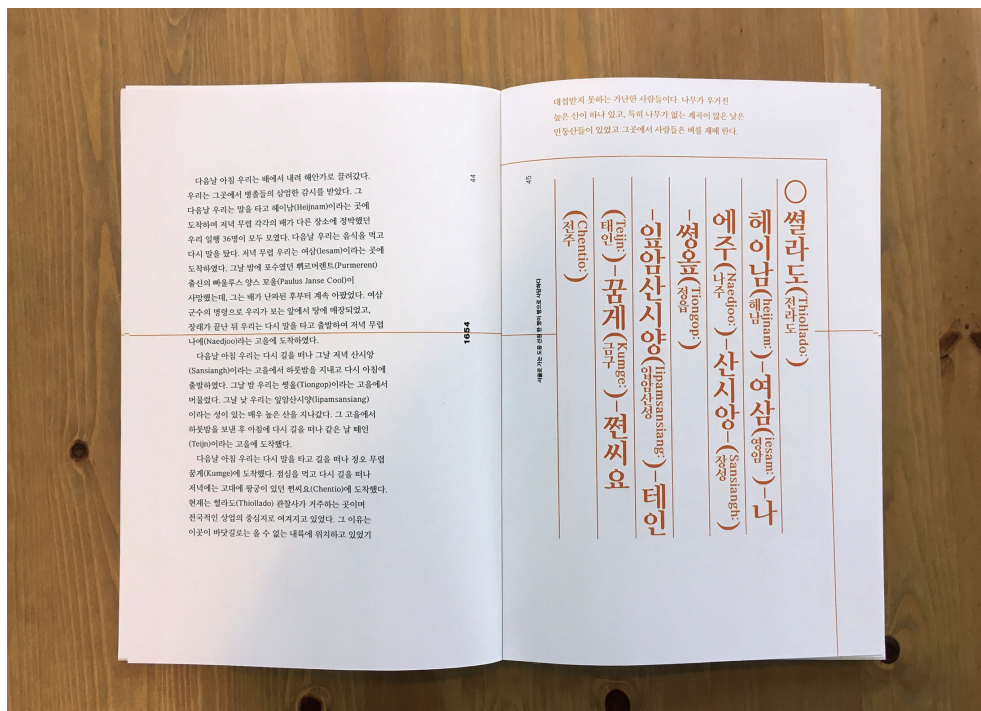 다음날 아침 우리는 배에서 내려 해안가로 끌려갔다.
우리는 그곳에서 병졸들의 삼엄한 감시를 받았다. 그
다음날 우리는 말을 타고 헤이남(Heijnam)이라는 곳에
도착하여 저녁 무렵 각각의 배가 다른 장소에 정박했던
우리 일행 36명이 모두 모였다. 다음날 우리는 음식을 먹고
다시 말을 탔다. 저녁 무렵 우리는 여삼(Iesam)이라는 곳에
도착하였다. 그날 밤에 포수였던 퓌르머렌트(Purmerent)
출신의 빠울루스 얀스 꼬울(Paulus Janse Cool)이
사망했는데, 그는 배가 난파된 후부터 계속 아팠었다. 여삼
군수의 명령으로 우리가 보는 앞에서 땅에 매장되었고,
장례가 끝난 뒤 우리는 다시 말을 타고 출발하여 저녁 무렵
나에(Naedjoo)라는 고을에 도착하였다.
다음날 아침 우리는 다시 길을 떠나 그날 저녁 산시앙
(Sansiangh)이라는 고을에서 하룻밤을 지내고 다시 아침에
출발하였다. 그날 밤 우리는 쩡올(Tiongop)이라는 고을에서
머물렀다. 그날 낮 우리는 잎암산시양(lipamsansiang)
이라는 성이 있는 매우 높은 산을 지나갔다. 그 고을에서
하룻밤을 보낸 후 아침에 다시 길을 떠나 같은 날 떼인
(Teijn)이라는 고을에 도착했다.
다음날 아침 우리는 다시 말을 타고 길을 떠나 정오 무렵
꿈게(Kumge)에 도착했다. 점심을 먹고 다시 길을 떠나
저녁에는 고대에 왕궁이 있던 쩐씨요(Chentio)에 도착했다.
현재는 쩔라도(Thiollado) 관찰사가 거주하는 곳이며
전국적인 상업의 중심지로 여겨지고 있었다. 그 이유는
이곳이 바닷길로는 올 수 없는 내륙에 위치하고 있었기
44
1654
대접받지 못하는 가난한 사람들이다. 나무가 우거진
높은 산이 하나 있고, 특히 나무가 없는 계곡이 많은 낮은
민둥산들이 있었고 그곳에서 사람들은 벼를 재배 한다.
45
서울로 가는 도중 선원 한 명이 병으로 사망하다
○ 쩔라도(Thiollado: 전라도)
헤이남(heijnam: 해남)–여삼(iesam: 영암)–나
에주(Naedjoo: 나주)–산시앙–(Sansiangh: 장성)
–쩡옾(Tiongop: 정읍)
–잎암산시양(lipamsansiang: 입암산성)–테인
(Teijn: 태인)–꿈게(Kumge: 금구)–쩐씨요
(Chentio: 전주)